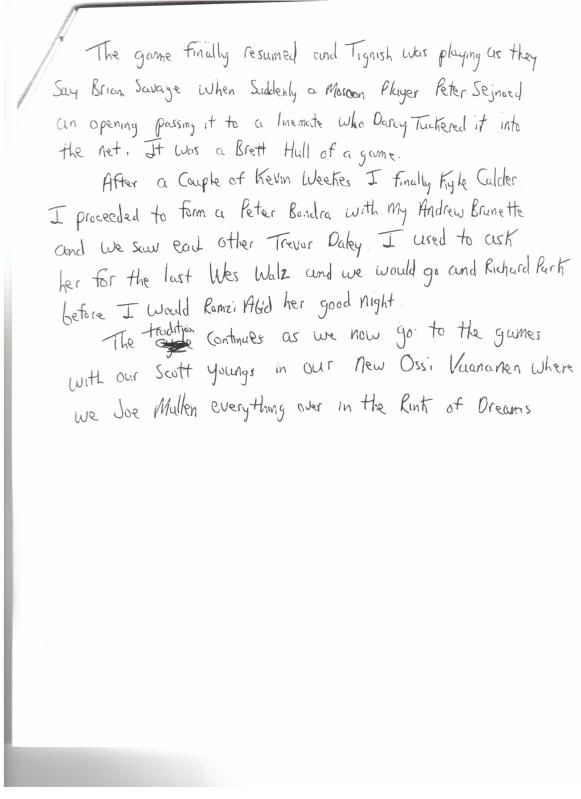 The game finally resumed and Tignish was playing as they
Say Brian Savage when Suddenly a Maroon Player Peter Sejnaed
an opening passing it to a linemate who Darcy Tuckered it into
the net. It was a Brett Hull of a game.
After a Couple of Kevin Weekes I finally Kyle Calder
I proceeded to form a Peter Bondra with my Andrew Brunette
and we saw each other Trevor Daley. I used to ask
her for the last Wes Walz and we would go and Richard Park
before I would Ramzi Abid her good night.
The tradition continues as we now go to the games
with our Scott Youngs in our new Ossi Vaananen where
we Joe Mullen everything over in the Rink of Dreams